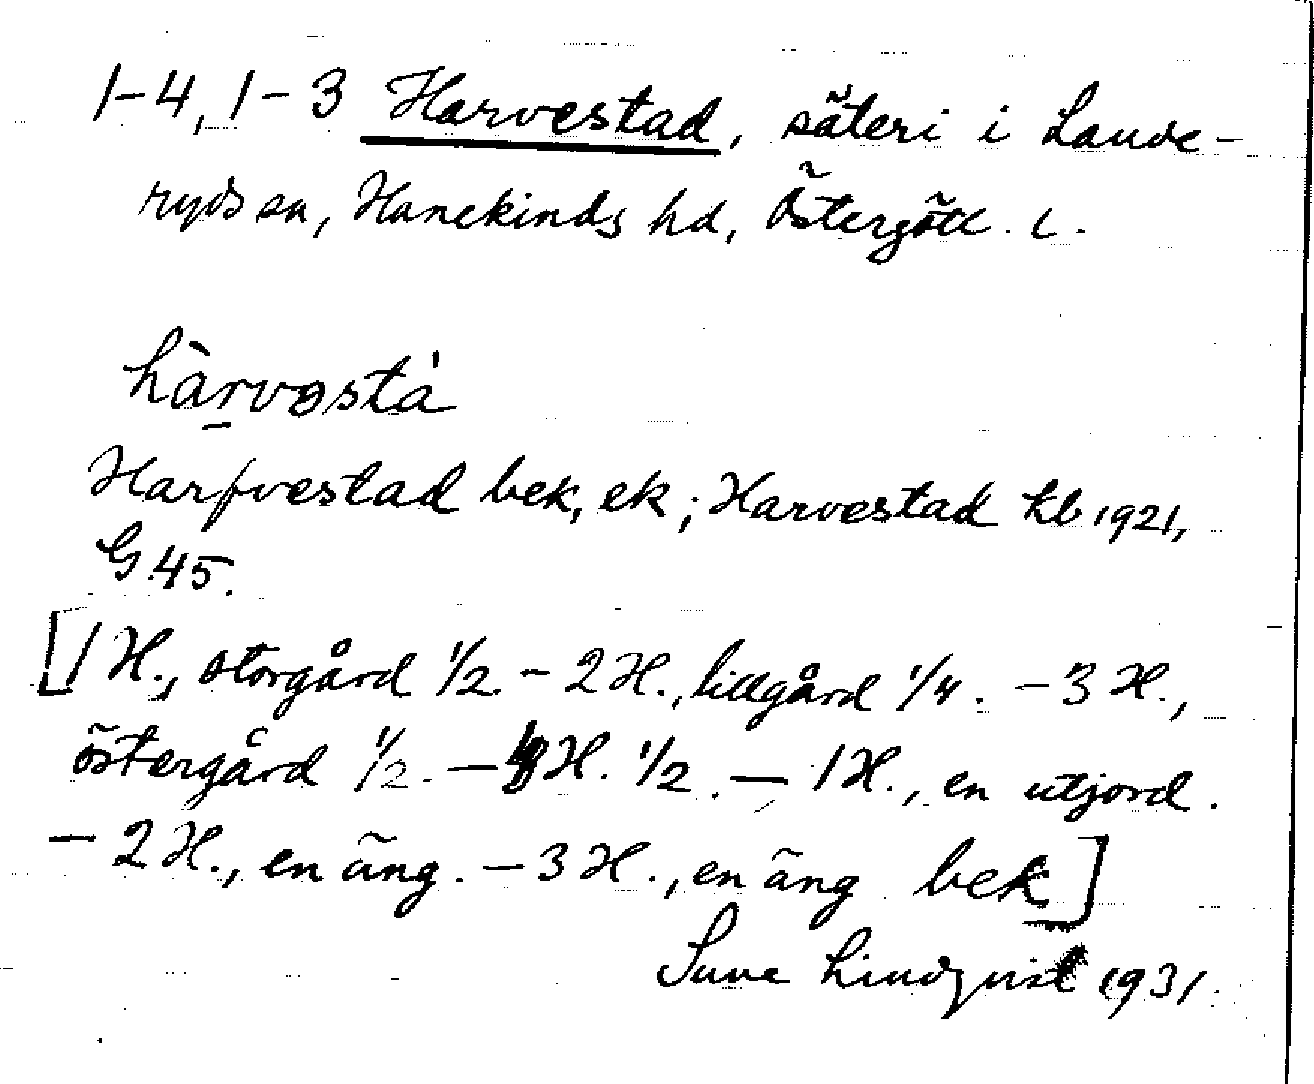 1-4, 1-3 Harvestad, säteri i Lande-
ryds sn, Hanekinds hd, Östergötl. l.
hàrvəstá
Harfvestad bek, ek; Harvestad kb 1921,
G 45.
[1 H., storgård 1/2. - 2 H., lillgård 1/4. - 3 H.,
östergård 1/2. - 4 H. 1/2. - 1 H., en utjord.
- 2 H., en äng. - 3 H., en äng bek]
Sune Lindqvist 1931.